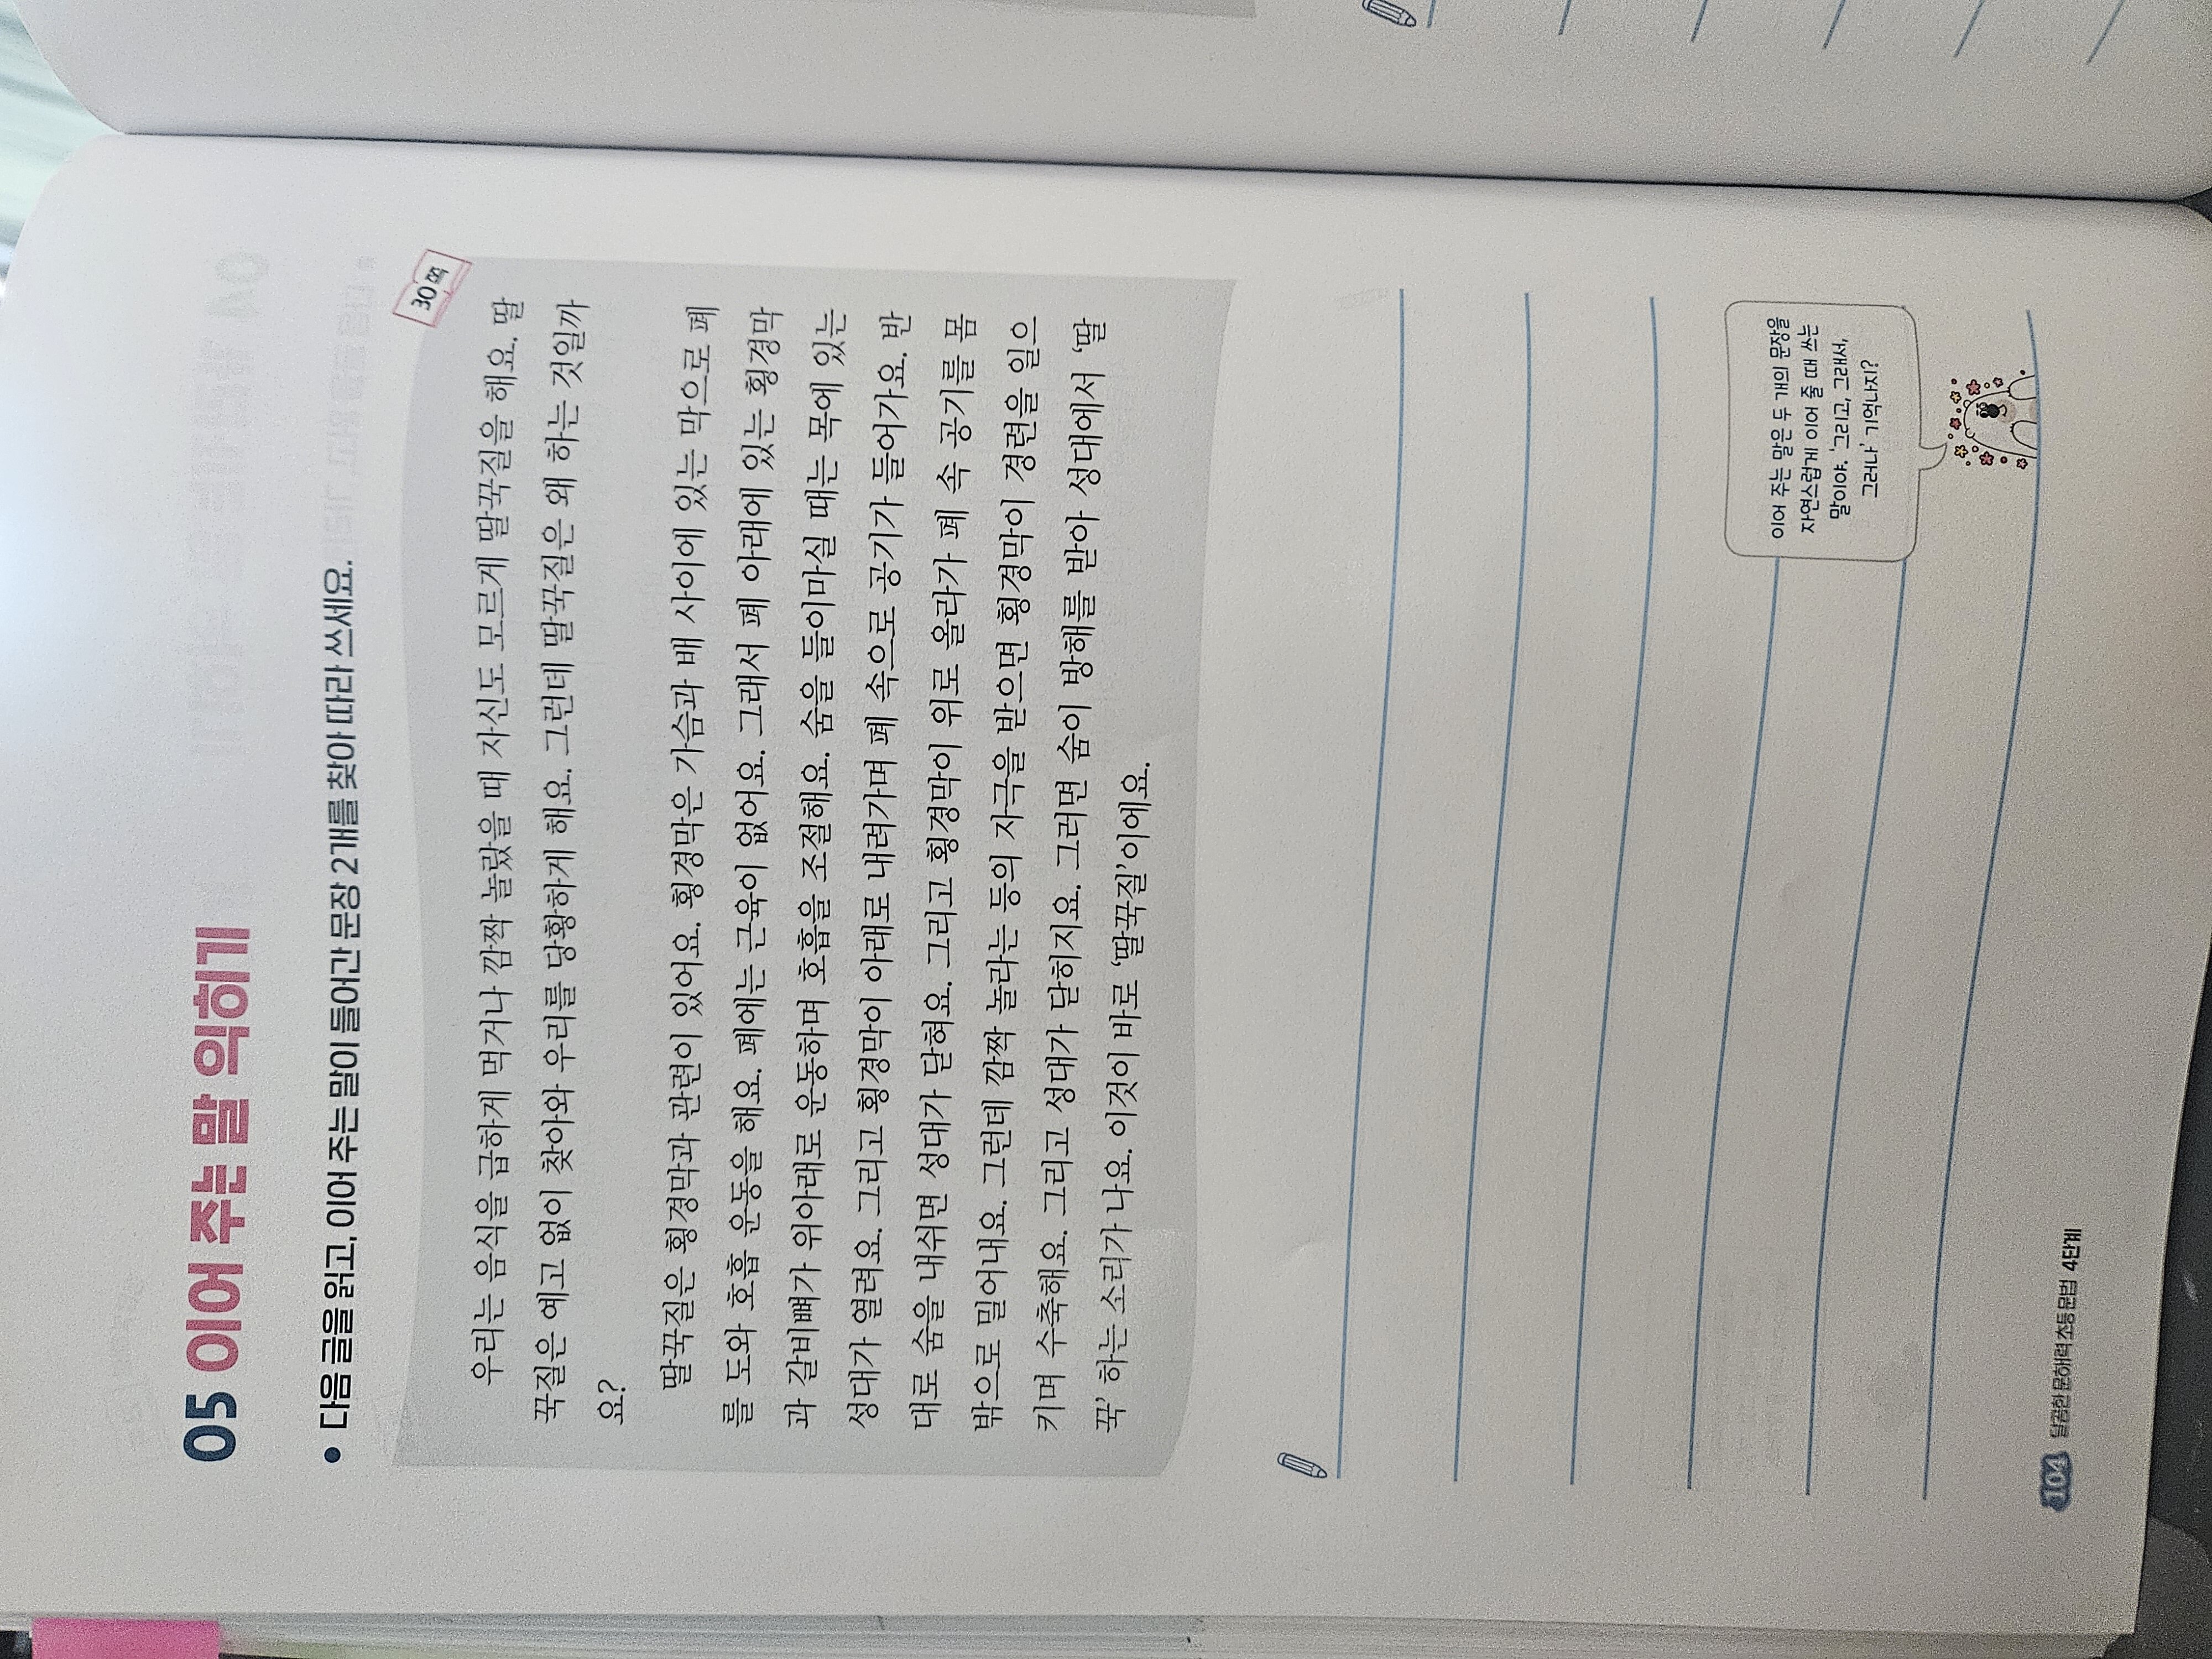 05 이어 주는 말 익히기
• 다음 글을 읽고, 이어 주는 말이 들어간 문장 2개를 찾아 따라 쓰세요.
30쪽
우리는 음식을 급하게 먹거나 깜짝 놀랐을 때 자신도 모르게 딸꾹질을 해요. 딸
꾹질은 예고 없이 찾아와 우리를 당황하게 해요. 그런데 딸꾹질은 왜 하는 것일까
요?
딸꾹질은 횡경막과 관련이 있어요. 횡경막은 가슴과 배 사이에 있는 막으로 폐
를 도와 호흡 운동을 해요. 폐에는 근육이 없어요. 그래서 폐 아래에 있는 횡경막
과 갈비뼈가 위아래로 운동하며 호흡을 조절해요. 숨을 들이마실 때는 목에 있는
성대가 열려요. 그리고 횡경막이 아래로 내려가며 폐 속으로 공기가 들어가요. 반
대로 숨을 내쉬면 성대가 닫혀요. 그리고 횡경막이 위로 올라가 폐 속 공기를 몸
밖으로 밀어내요. 그런데 깜짝 놀라는 등의 자극을 받으면 횡경막이 경련을 일으
키며 수축해요. 그리고 성대가 닫히지요. 그러면 숨이 방해를 받아 성대에서 ‘딸
꾹’ 하는 소리가 나요. 이것이 바로 ‘딸꾹질’이에요.
이어 주는 말은 두 개의 문장을
자연스럽게 이어 줄 때 쓰는
말이야. '그리고, 그래서,
그러나' 기억나지?
104 달곰한 문해력 초등 문법 4단계